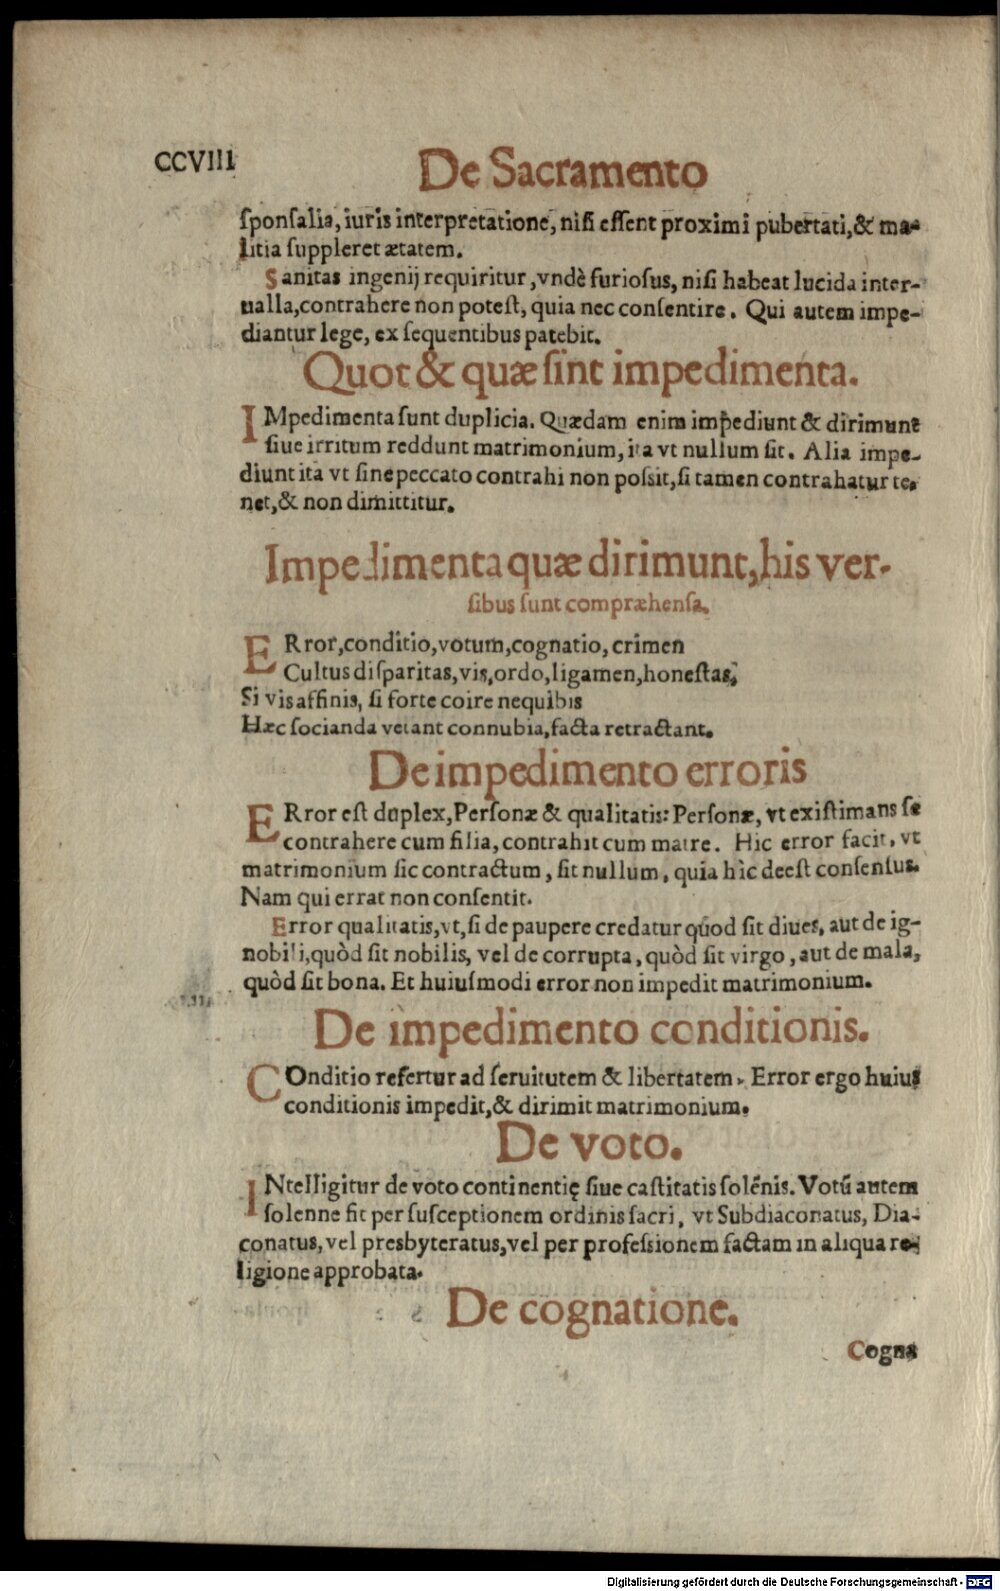 CCVIII
De Sacramento
ſponſalia, iuris interpretatione, niſi eſſent proximi pubertati, & ma-
litia ſuppleret ætatem.
Sanitas ingenij requiritur, vndè furioſus, niſi habeat lucida inter-
ualla, contrahere non poteſt, quia nec conſentire. Qui autem impe-
diantur lege, ex ſequentibus patebit.
Quot & quæ ſint impedimenta.
IMpedimenta ſunt duplicia. Quædam enim impediunt & dirimunt
ſiue irritum reddunt matrimonium, ita vt nullum ſit. Alia impe-
diunt ita vt ſine peccato contrahi non poſsit, ſi tamen contrahatur te-
net, & non dimittitur.
Impedimenta quæ dirimunt, his ver-
ſibus ſunt compræhenſa.
ERror, conditio, votum, cognatio, crimen
Cultus diſparitas, vis, ordo, ligamen, honeſtas,
Si vis affinis, ſi forte coire nequibis
Hæc socianda vetant connubia, facta retractant.
De impedimento erroris
ERror eſt duplex, Perſonæ & qualitatis: Perſonæ, vt exiſtimans ſe
contrahere cum filia, contrahit cum matre. Hic error facit, vt
matrimonium ſic contractum, ſit nullum, quia hìc deeſt conſenſus.
Nam qui errat non conſentit.
Error qualitatis, vt, ſi de paupere credatur quod ſit diues, aut de ig-
nobili, quòd ſit nobilis, vel de corrupta, quòd ſit virgo, aut de mala,
quòd ſit bona. Et huiuſmodi error non impedit matrimonium.
De impedimento conditionis.
COnditio refertur ad ſeruitutem & libertatem. Error ergo huius
conditionis impedit, & dirimit matrimonium.
De voto.
INtelligitur de voto continentię ſiue caſtitatis ſolẽnis. Votũ autem
ſolenne fit per ſuſceptionem ordinis ſacri, vt Subdiaconatus, Dia-
conatus, vel presbyteratus, vel per profeſsionem factam in aliqua re-
ligione approbata.
De cognatione.
Cogna
Digitalisierung gefördert durch die Deutsche Forschungsgemeinschaft - DFG